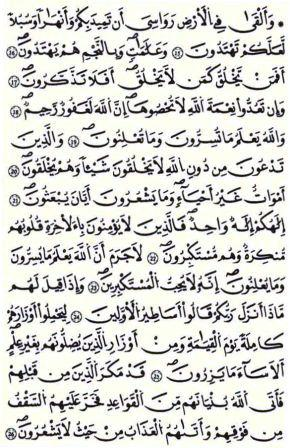 وَأَلْقَىٰ فِي الْأَرْضِ رَوَاسِيَ أَن تَمِيدَ بِكُمْ وَأَنْهَارًا وَسُبُلًا
لَّعَلَّكُمْ تَهْتَدُونَ ١٥ وَعَلَامَاتٍ وَبِالنَّجْمِ هُمْ يَهْتَدُونَ ١٦
أَفَمَن يَخْلُقُ كَمَن لَّا يَخْلُقُ أَفَلَا تَذَكَّرُونَ ١٧
وَإِن تَعُدُّوا نِعْمَةَ اللَّهِ لَا تُحْصُوهَا إِنَّ اللَّهَ لَغَفُورٌ رَّحِيمٌ ١٨
وَاللَّهُ يَعْلَمُ مَا تُسِرُّونَ وَمَا تُعْلِنُونَ ١٩ وَالَّذِينَ
تَدْعُونَ مِن دُونِ اللَّهِ لَا يَخْلُقُونَ شَيْئًا وَهُمْ يُخْلَقُونَ ٢٠
أَمْوَاتٌ غَيْرُ أَحْيَاءٍ وَمَا يَشْعُرُونَ أَيَّانَ يُبْعَثُونَ ٢١
إِلَٰهُكُمْ إِلَٰهٌ وَاحِدٌ فَالَّذِينَ لَا يُؤْمِنُونَ بِالْآخِرَةِ قُلُوبُهُم
مُّنكِرَةٌ وَهُم مُّسْتَكْبِرُونَ ٢٢ لَا جَرَمَ أَنَّ اللَّهَ يَعْلَمُ مَا يُسِرُّونَ
وَمَا يُعْلِنُونَ إِنَّهُ لَا يُحِبُّ الْمُسْتَكْبِرِينَ ٢٣ وَإِذَا قِيلَ لَهُم
مَّاذَا أَنزَلَ رَبُّكُمْ قَالُوا أَسَاطِيرُ الْأَوَّلِينَ ٢٤ لِيَحْمِلُوا أَوْزَارَهُمْ
كَامِلَةً يَوْمَ الْقِيَامَةِ وَمِنْ أَوْزَارِ الَّذِينَ يُضِلُّونَهُم بِغَيْرِ عِلْمٍ
أَلَا سَاءَ مَا يَزِرُونَ ٢٥ قَدْ مَكَرَ الَّذِينَ مِن قَبْلِهِمْ
فَأَتَى اللَّهُ بُنْيَانَهُم مِّنَ الْقَوَاعِدِ فَخَرَّ عَلَيْهِمُ السَّقْفُ
مِن فَوْقِهِمْ وَأَتَاهُمُ الْعَذَابُ مِنْ حَيْثُ لَا يَشْعُرُونَ ٢٦